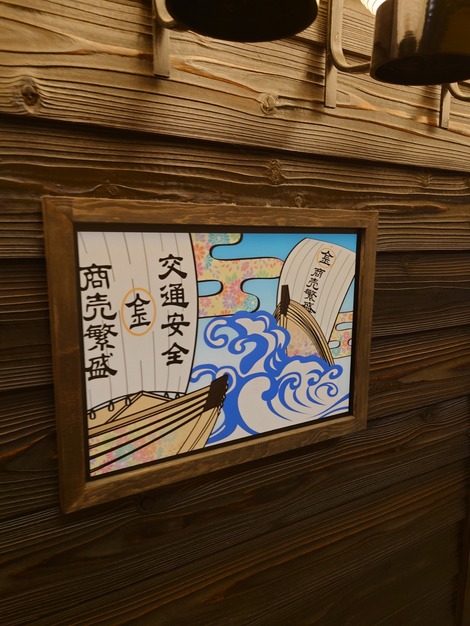 金
商売繁盛
交通安全
金
商売繁盛